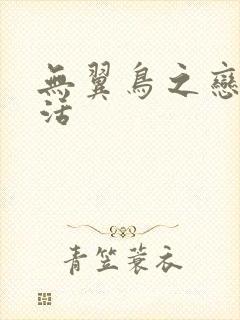 無翼鳥之戀
活
青笠蓑衣